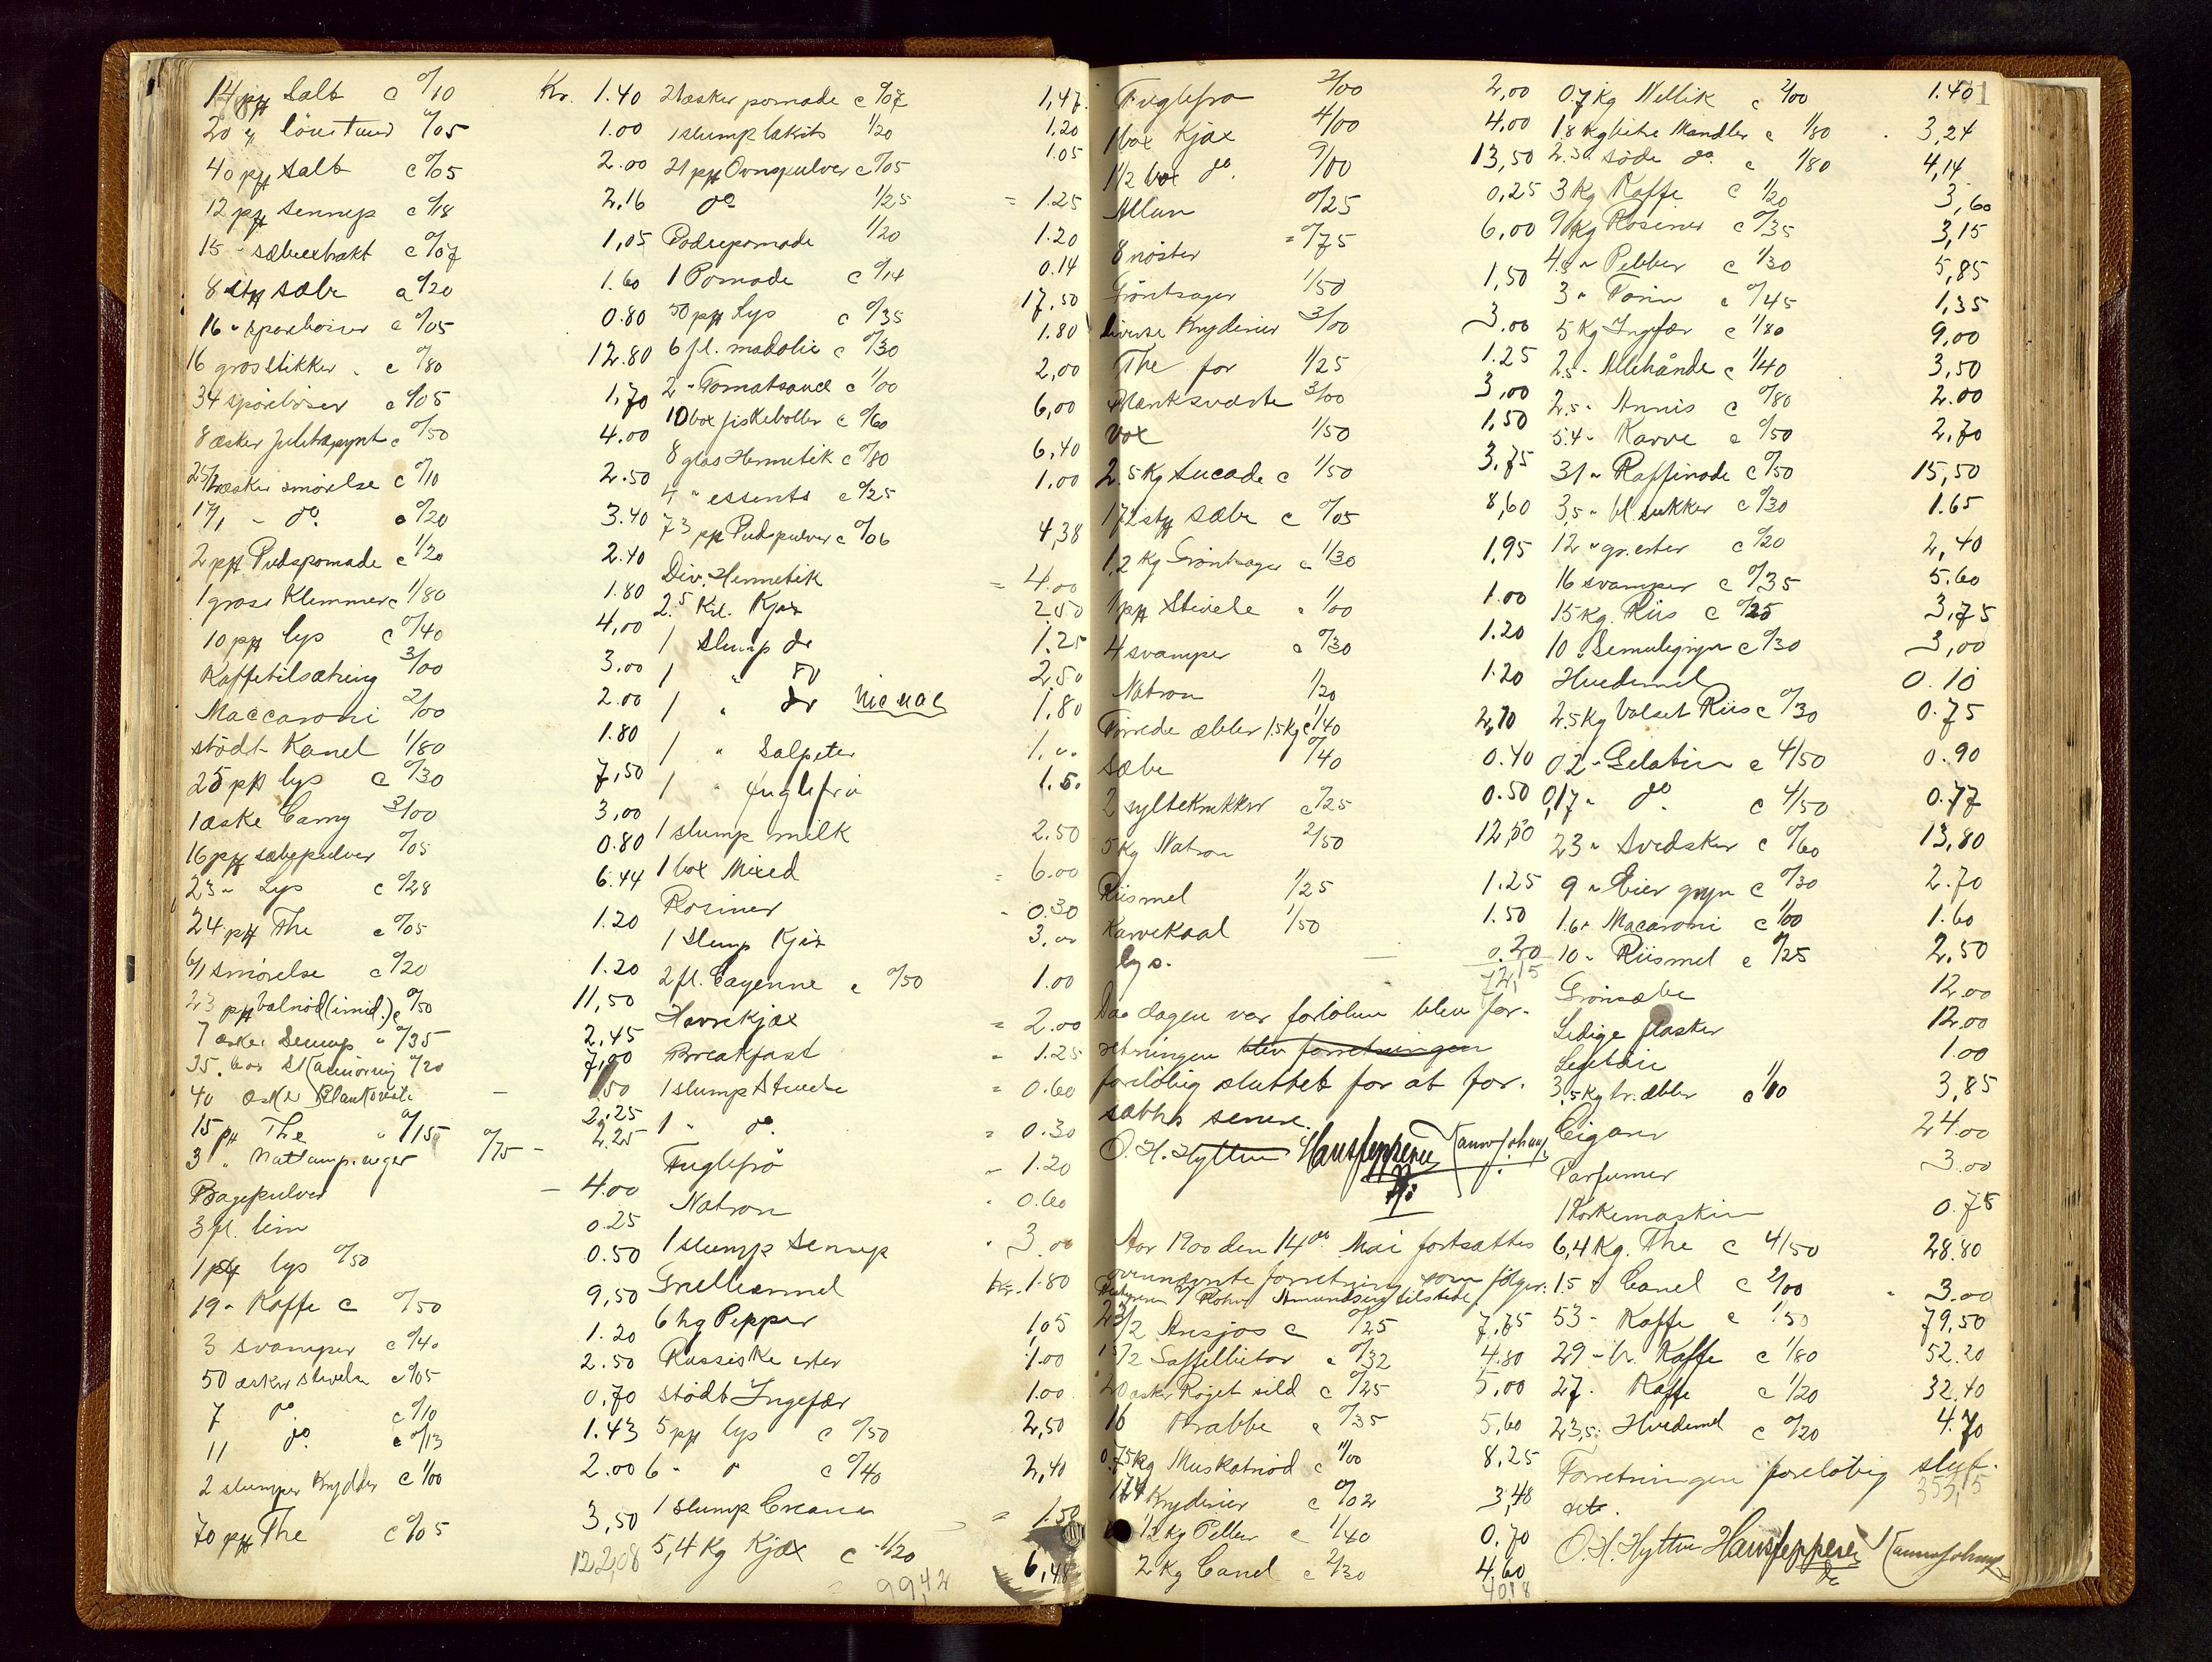 14 pk Salt c 0/10 Kr. 1.40
20 " 0/05 1.00
40 pk Salt c 0/05 2.00
12 pk Sennep c 0/18 2,16
15 - sæbeextrakt c 0/07 1,05
8 stk sæbe a 0/20 1.60
16 " sparebøsser c 0/05 0.80
16 gros stikker . c 0/80 12.80
34 sparebøser c 0/05 1,70
8 æsker juletræpynt c 0/50 4.00
25/2 æsker smørelse c 0/10 2.50
17/1 - do. a 0/20 3.40
2 pk Pudspomade c 1/20 2.40
1 gross Klemmer c 1/80 1.80
10 pk lys c 0/40 4,00
Kaffetilsætning 3/00 3.00
Maccaroni 2/00 2.00
stødt Kanel 1/80 1.80
25 pk lys c 0/30 7,50
1 æske Carry 3/00 3,00
16 pk sæbepulver 0/05 0.80
23 " Lys c 0/28 6.44
24 pk The c 0/05 1.20
6/1 smørelse c 0/20 1.20
23 pk Valnød (imid.) c 0/50 11,50
7 æsker Sennep " 0/35 2,45
35. 0/20 7,00
40 æsker Blanksværte - 50
15 pk The " 0/15 2,25
3 " 0/75 - 2,25
Bagepulver - 4.00
3 fl. lim 0.25
1 pk lys 0/50 0.50
19 - Kaffe c 0/50 9,50
3 svamper c 0/40 1.20
50 æsker stivelse c 0/05 2.50
7 do. c 0/10 0,70
11 do. c 0/13 1.43
2 slumper Krydder c 1/00 2.00
70 pk The c 0/05 3,50
122,08
21 æsker pomade c 0/07 1,47.
1 slump lakrits 1/20 1,20
21 pk Ovnspulver c 0/05 1.05
do 1/25 = 1.25
Pudsepomade 1/20 1.20
1 Pomade c 0/14 0.14
50 pk Lys c 0/35 17,50
6 fl. madolie c 0/30 1.80
2 - Tomatsauce c 1/00 2,00
10 box fiskeboller c 0/60 6,00
8 glas Hermetik c 0/80 6,40
4 " essents c 0/25 1,00
73 pk Pudspulver c 0/06 4,38
Div. Hermetik = 4.00
2.5 Kil. Kjæx 2.50
1 Slump do 1.25
1 " do 2,50
1 " do Nic Nac 1,80
1 " Salpeter 1,00
1 " fuglefrø 1.50
1 slump milk 2.50
1 box Mixed = 6.00
Rosiner - 0.30
1 Slump Kjæx 3,00
2 fl. Cayenne c 0/50 1.00
Havrekjæx = 2.00
Breakfast " 1.25
1 slump Stivelse = 0.60
1 " do. = 0.30
Fuglefrø - 1.20
Natron - 0.60
1 slump Sennep " 3.00
Kr. 1.80
6 hg Pepper 1,05
Russiske erter 1.00
stødt Ingefær 1.00
5 pk lys c 0/50 2,50
6 " " c 0/40 2,40
1 slump = 1.50
5,4 Kg Kjæx c 1/20 6,48
99,42
Fuglefrø 2/00 2,00
1 box Kjæx 4/00 4,00
1 1/2 box do. 9/00 13,50
Allun 0/25 0,25
8 nøster = 0/75 6,00
Grøntsager 1/50 1,50
Diverse Kryderier 3/00 3.00
The for 1/25 1.25
Blanksværte 3/00 3,00
Vox 1/50 1,50
2.5 Kg Sucade c 1/50 3,75
172 stk sæbe c 0/05 8,60
1,2 Kg Grøntsager c 1/30 1,95
1 pk Stivelse " 1/00 1.00
4 svamper a 0/30 1.20
Natron 1/20 1.20
Tørrede æbler 1.5 Kg c 1/40 2,10
sæbe 0/40 0.40
2 syltekrukker c 0/25 0.50
5 Kg Natron 2/50 12,50
Riismel 1/25 1.25
Karvekaal 1/50 1.50
lys. - 0.20
72,15
Da dagen var forløben blev for-
retningen blev forretningen
foreløbig sluttet for at for.
sættes senere.
O. H. Hyttve Hans Jeppesen
Aar 1900 den 14de Mai fortsattes
ovennævnte forretning som følger.
Amundsen tilstede.
23/2 Ansjos c 0/25 7,75
15/2 Saffelbiter c 0/32 4.80
20 æsker Røget sild c 0/25 5,00
16 Krabbe c 0/35 5,60
0.75 Kg Muskatnød c 11/00 8,25
174 Kryderier c 0/02 3,48
1/2 kg Peber c 1/40 0.70
2 Kg Canel c 2/30 4,60
40,18
0.7 Kg Nellik c 2/00 1.40
1.8 Kg bitre Mandler c 1/80 3,24
2.3 " søde do. c 1/80 4,14
3 Kg Kaffe c 1/20 3,60
9 Kg Rosiner c 0/35 3,15
4.5 " Pebber c 1/30 5,85
3 " Farin c 0/45 1,35
5 Kg Ingefær c 1/80 9,00
2.5 - Allehånde c 1/40 3,50
2.5 - Annis c 0/80 2.00
5.4 - Karve c 0/50 2,70
31 " Raffinade c 0/50 15,50
3,5 - bl. sukker c 0/30 1.65
12 " gr. erter c 0/20 2,40
16 svamper c 0/35 5.60
15 Kg. Riis c 0/25 3,75
10 " Semulegryn c 0/30 3,00
Hvedemel 0.10
2.5 Kg Valset Riis c 0/30 0.75
0.2 - Gelatin c 4/50 0.90
0,17 " do. c 4/50 0.77
23 " Svedsker c 0/60 13,80
9 " Bier gryn c 0/30 2.70
1.6 " Macaroni c 1/00 1.60
10 - Riismel c 0/25 2,50
Grønsæbe 12.00
Ledige flasker 12.00
1.00
3.5 Kg tr. æbler c 1/10 3,85
Cigarer 24.00
Parfumer 3.00
1 Korkemaskin 0.75
6,4 Kg. The c 4/50 28.80
1.5 " Canel c 2/00 " 3.00
53 - Kaffe c 1/50 79,50
29 - br. Kaffe c 1/80 52.20
27. Kaffe c 1/20 32,40
23,5: Hvedemel c 0/20 4.70
Forretningen foreløbig slut-
tet.
353,15
O. H. Hyttve Hans Jeppesen